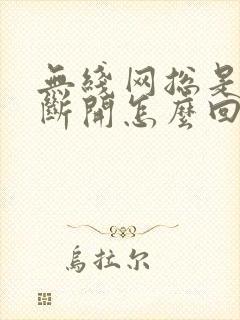 無綫网總是
斷開怎麼回
烏拉尔